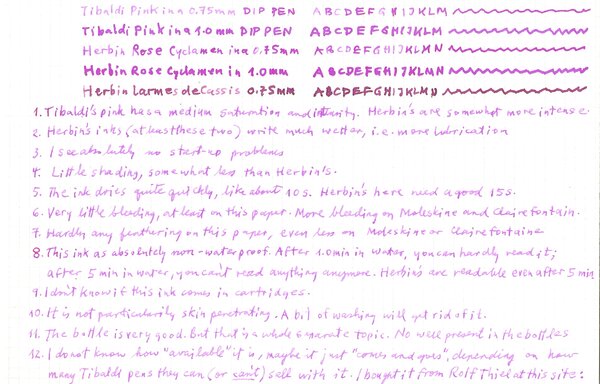 Tibaldi Pink in a 0.75mm DIP PEN ABCDEFGHIJKLM
Tibaldi Pink in a 1.0mm DIP PEN ABCDEFGHIJKLM
Herbin Rose Cyclamen in a 0.75mm ABCDEFGHIJKLMN
Herbin Rose Cyclamen in 1.0mm ABCDEFGHIJKLMN
Herbin Larmes de Cassis 0.75mm ABCDEFGHIJKLMN
1. Tibaldi's pink has a medium saturation and intensity. Herbin's are somewhat more intense.
2. Herbin's inks (at least these two) write much wetter, i.e. more lubrication
3. I see absolutely no start-up problems
4. Little shading, somewhat less than Herbin's.
5. The ink dries quite quickly, like about 10s. Herbin's here need a good 15s.
6. Very little bleeding, at least on this paper. More bleeding on Moleskine and Clairefontain.
7. Hardly any feathering on this paper, even less on Moleskine or Clairefontaine
8. This ink as absolutely non-waterproof. After 1.0min in water, you can hardly read it;
after 5 min in water, you can't read anything anymore. Herbin's are readable even after 5 min.
9. I don't know if this ink comes in cartridges.
10. It is not particularly skin penetrating. A bit of washing will get rid of it.
11. The bottle is very good. But that is a whole separate topic. No well present in the bottles
12. I do not know how "available" it is, maybe it just "comes and goes", depending on how
many Tibaldi pens they can (or can't) sell with it. I bought it from Rolf Thiel at this site: